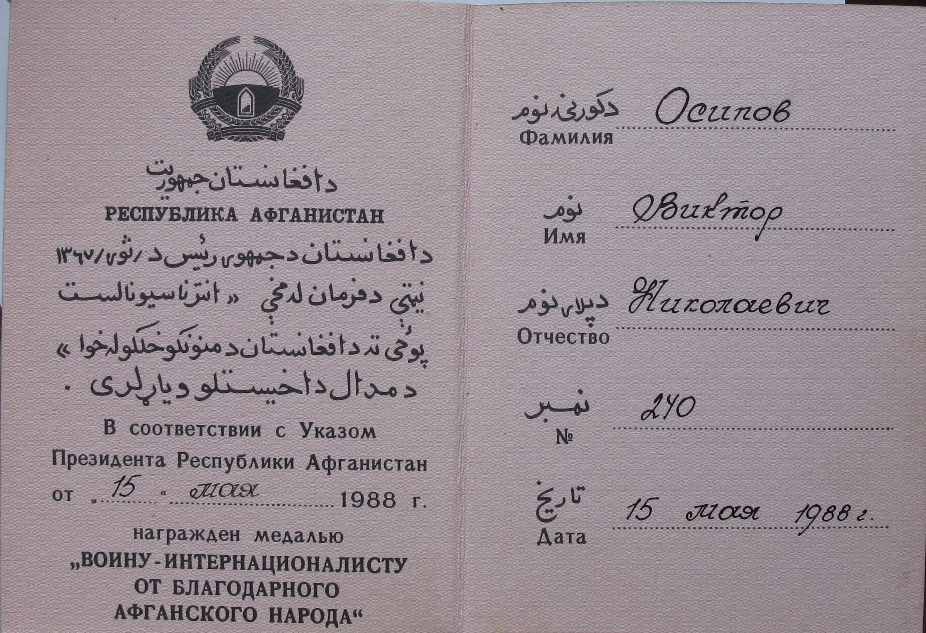 دافغانستان جمهوریت
РЕСПУБЛИКА АФГАНИСТАН
دافغانستان دجمهوری رئیس د / ثور / ۱۳۶۷
نیټې دفرمان له مخې « انترناسیونالست
پوځی ته دافغانستان د منونکو خلکو له خوا »
د مدال داخیستلو ویاړ لری .
В соответствии с Указом
Президента Республики Афганистан
от „ 15 “ мая 1988 г.
награжден медалью
„ВОИНУ-ИНТЕРНАЦИОНАЛИСТУ
ОТ БЛАГОДАРНОГО
АФГАНСКОГО НАРОДА“
دکورنی نوم Осипов
Фамилия
نوم Виктор
Имя
دپلار نوم Николаевич
Отчество
نمبر 240
№
تاریخ 15 мая 1988 г.
Дата